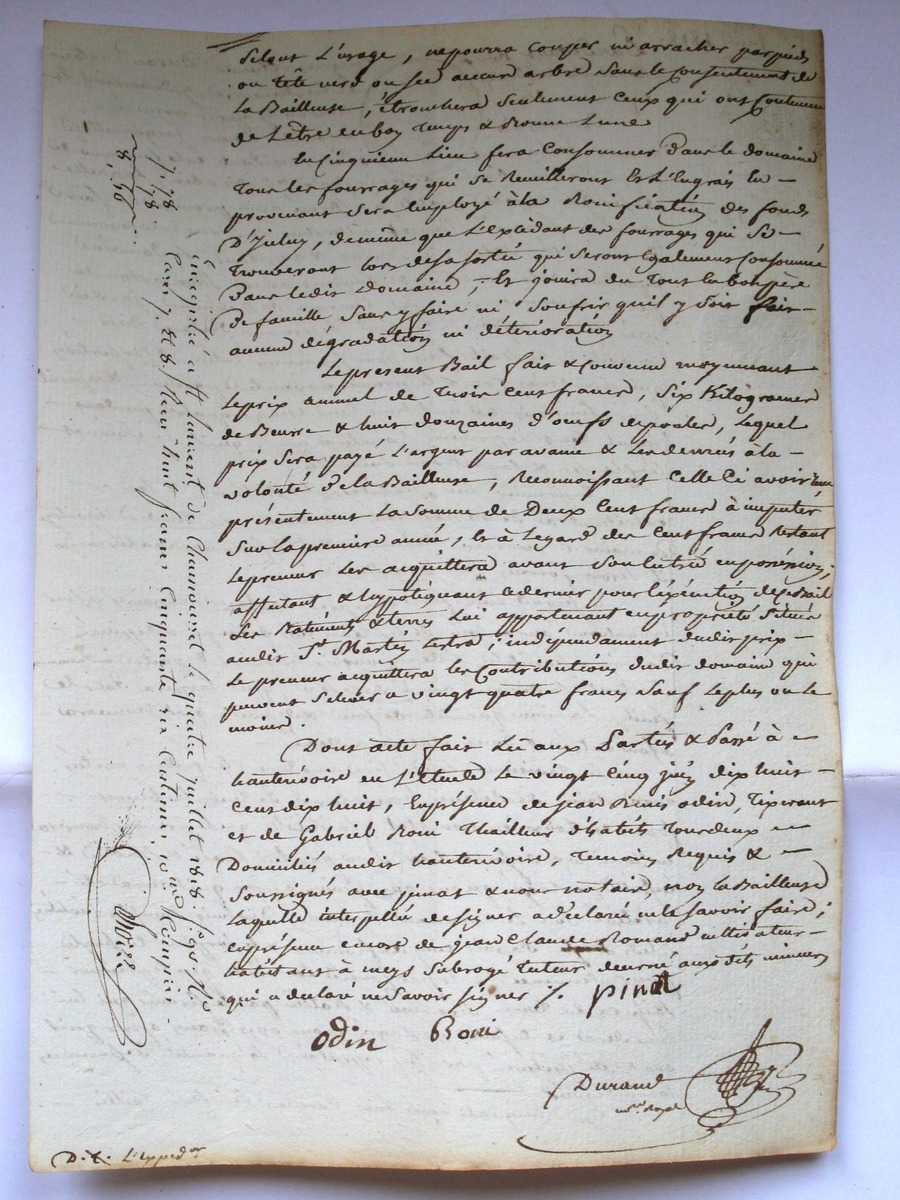 selont L'usage, ne pourra couper ni arracher par pieds
ou tête verd ou sec aucun arbre sans le consentement de
La Bailleuse, étronchera seulement ceux qui ont coutume
de L'être en bon temps & bonne Lune
En cinquieme Lieu fera consommer dans le domaine
tous les fourrages qui se Recüilleront Et L'Engrais En
provenant sera employé à la Bonification des fonds
D'Iceluy, de même que L'Excédant des fourrages qui se
trouveront lors de sa sortie qui seront également consommés
Dans ledit Domaine, Et jouira du tout en bon père
de famille sans y faire ni soufrir qu'il y soit fait
aucune dégradation ni déterioration
Le present Bail fait & convenu moyennant
Le prix annuel de trois cent francs, six Kilogrames
de Beurre & huit douzaines d'oeufs de poules, Lequel
prix sera payé L'argent par avance & Les denrés à la
volonté de la Bailleuse, Reconnoissant celle ci avoir
présentement La somme de Deux cent francs à imputer
sur la premiere année, Et à L'egard des cent francs Restant
Le preneur Les aquittera avant son entrée en possession,
affectant & hypotéquant ce dernier pour l'exécution de ce Bail
Les Batiments & terres Lui appartenant en propriété situés
audit St. Martin Lestra; indépendament dudit prix
Le preneur aquittera les contributions dudit domaine qui
peuvent s'élever a vingt quatre francs sauf le plus ou le
moins.
Dont acte fait Lu aux Parties & Passé à
hauterivoire en L'étude Le vingt cinq juin dix huit
cent dix huit, En présence de jean odin, tixerant
et de Gabriel Boni thailleur d'habits tous deux
Domiciliés audit hauterivoire, temoins Requis &
soussignés avec pinat & nous notaire, non La Bailleuse
Laquelle interpellée de signer a déclaré ne le savoir faire;
En présence encore de jean Claude Romand cultivateur
habitant à meys subrogé tuteur décerné aux dits mineurs
qui a declaré ne savoir signer /. pinat
odin Boni
Durand
nre. Royal
D. E. L'exped
7. 78.
78.
8, 56
Enregistré à St Laurent de Chamousset le quatre juillet 1818. fo. 98. Ro.
Cases 7 et 8. Reçu huit francs cinquante six centimes 10me. compris.